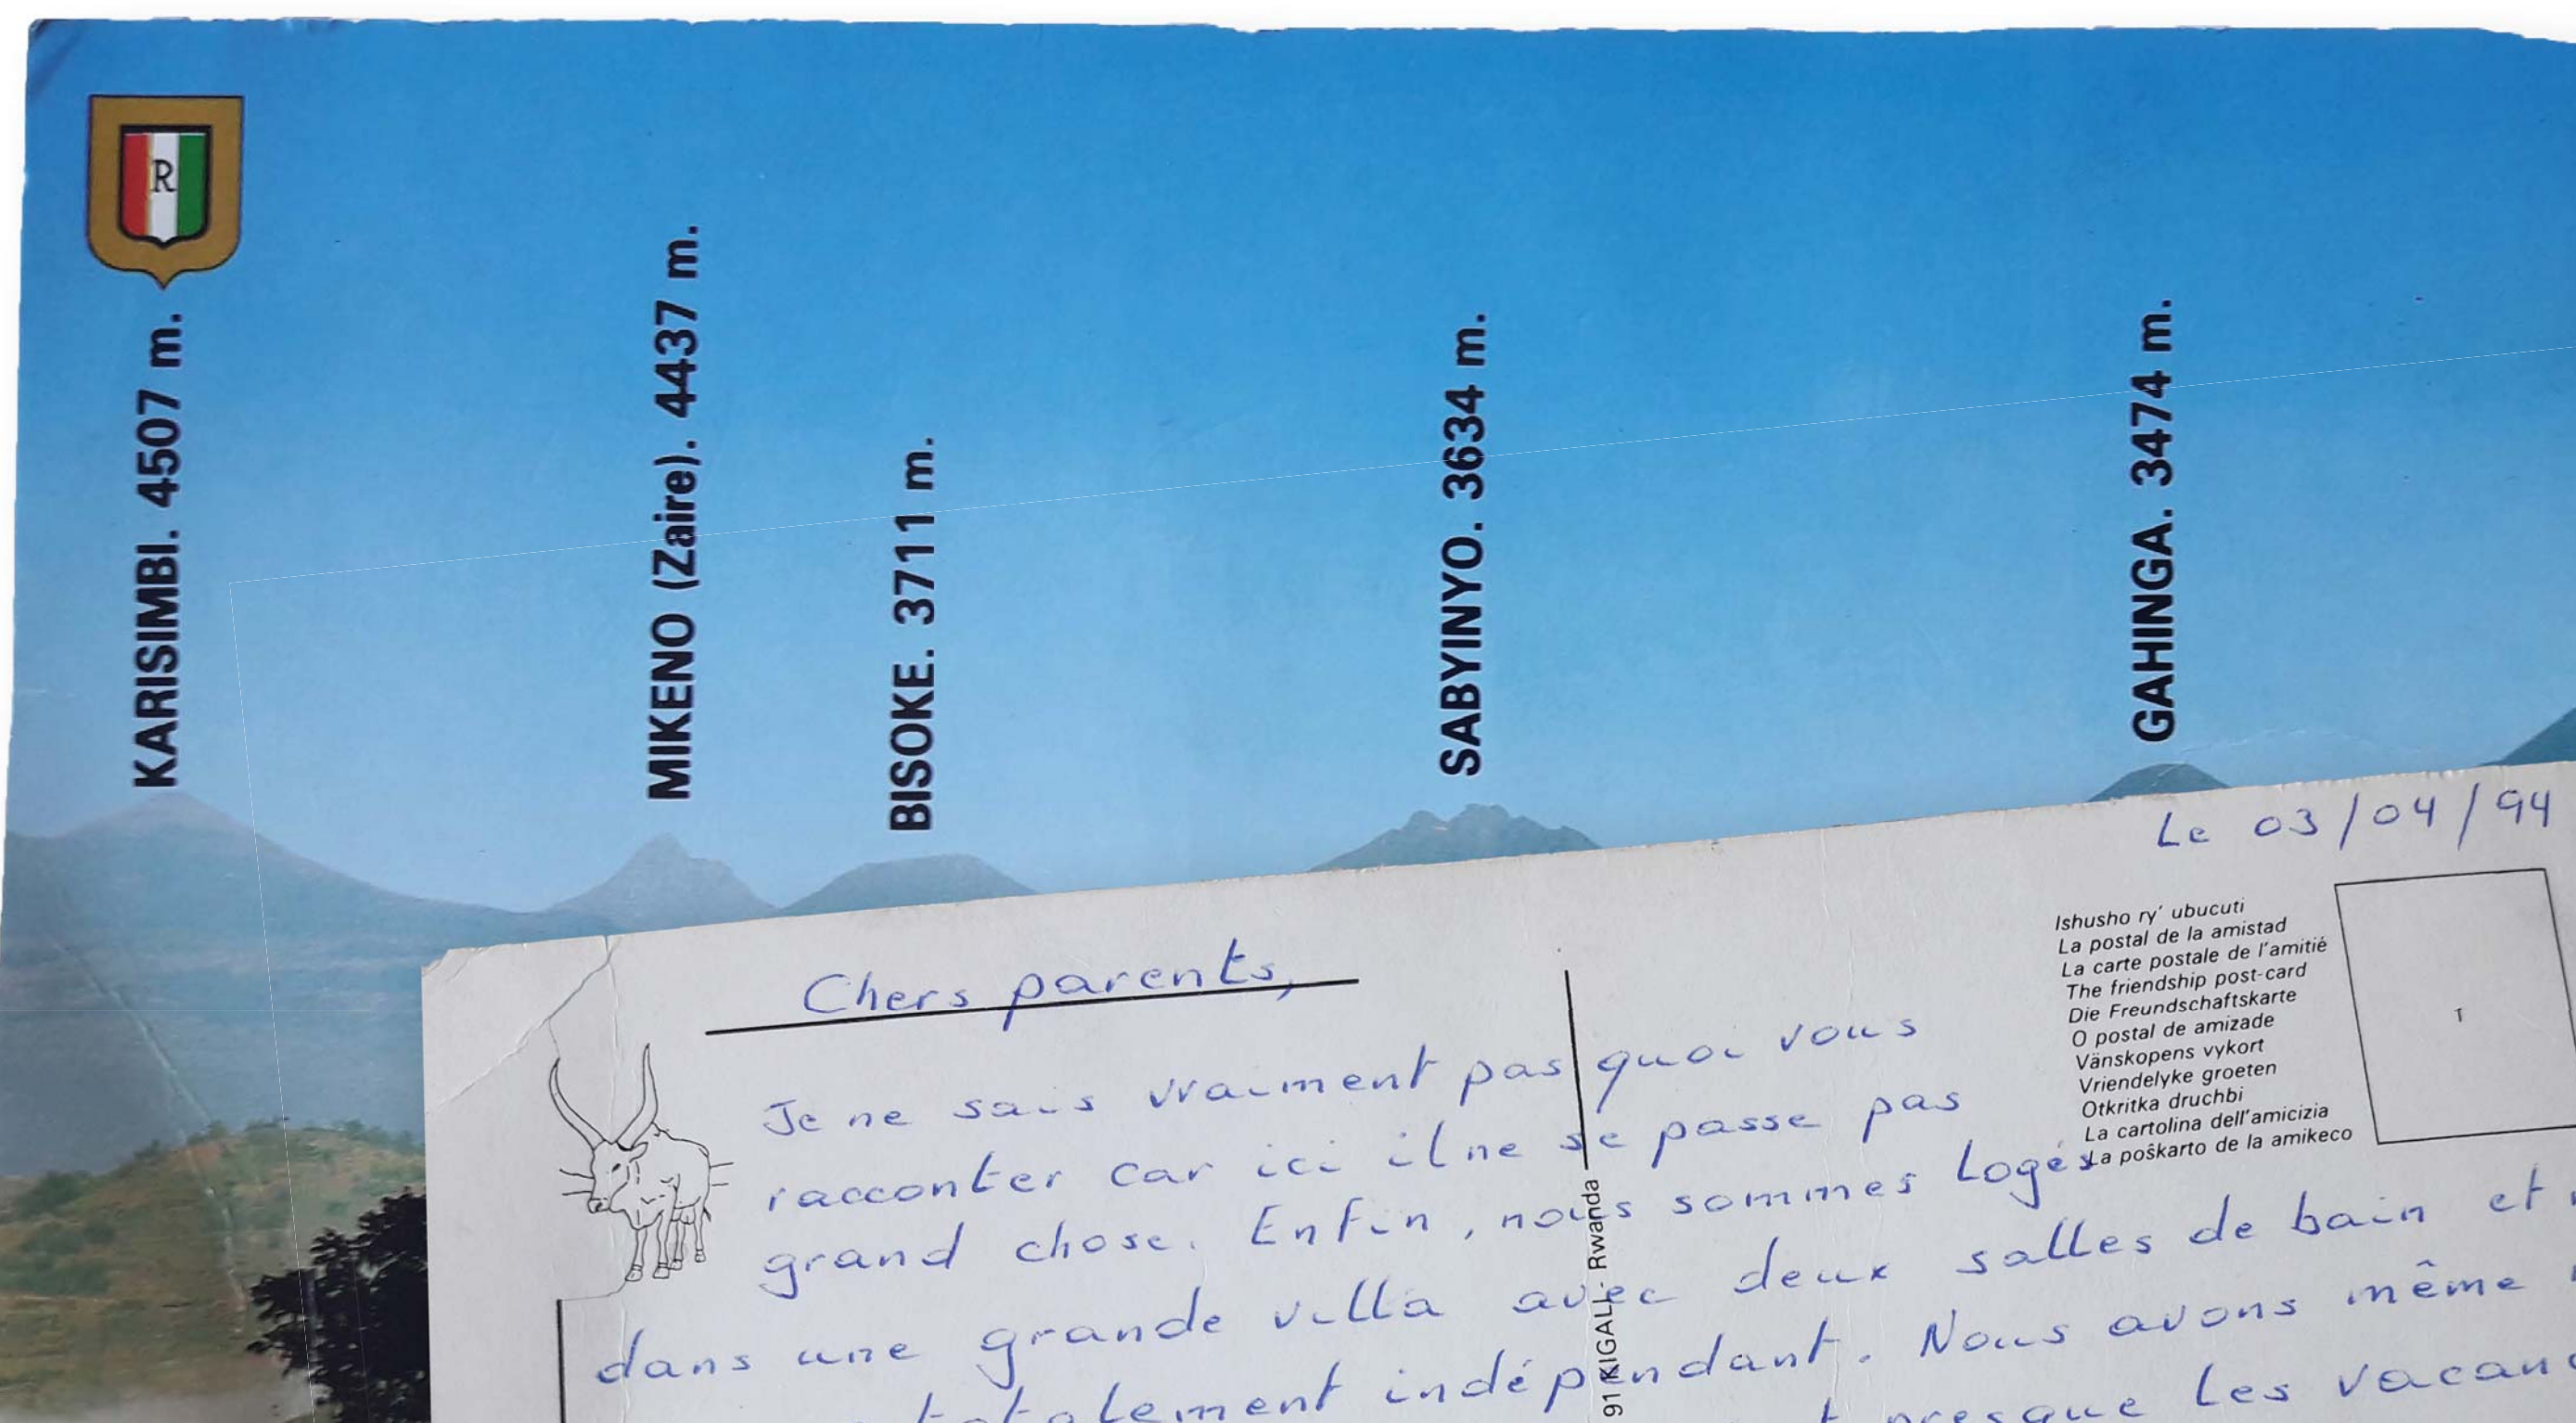 R
KARISIMBI. 4507 m.
MIKENO (Zaire). 4437 m.
BISOKE. 3711 m.
SABYINYO. 3634 m.
GAHINGA. 3474 m.
Le 03/04/94
Ishusho ry' ubucuti
La postal de la amistad
La carte postale de l'amitié
The friendship post-card
Die Freundschaftskarte
O postal de amizade
Vänskopens vykort
Vriendelyke groeten
Otkritka druchbi
La cartolina dell'amicizia
La poŝkarto de la amikeco
Chers parents,
Je ne sais vraiment pas quoi vous
racconter car ici il ne se passe pas
grand chose. Enfin, nous sommes logés
dans une grande villa avec deux salles de bain et
totalement indépendant. Nous avons même
presque les
91 KIGALI - Rwanda